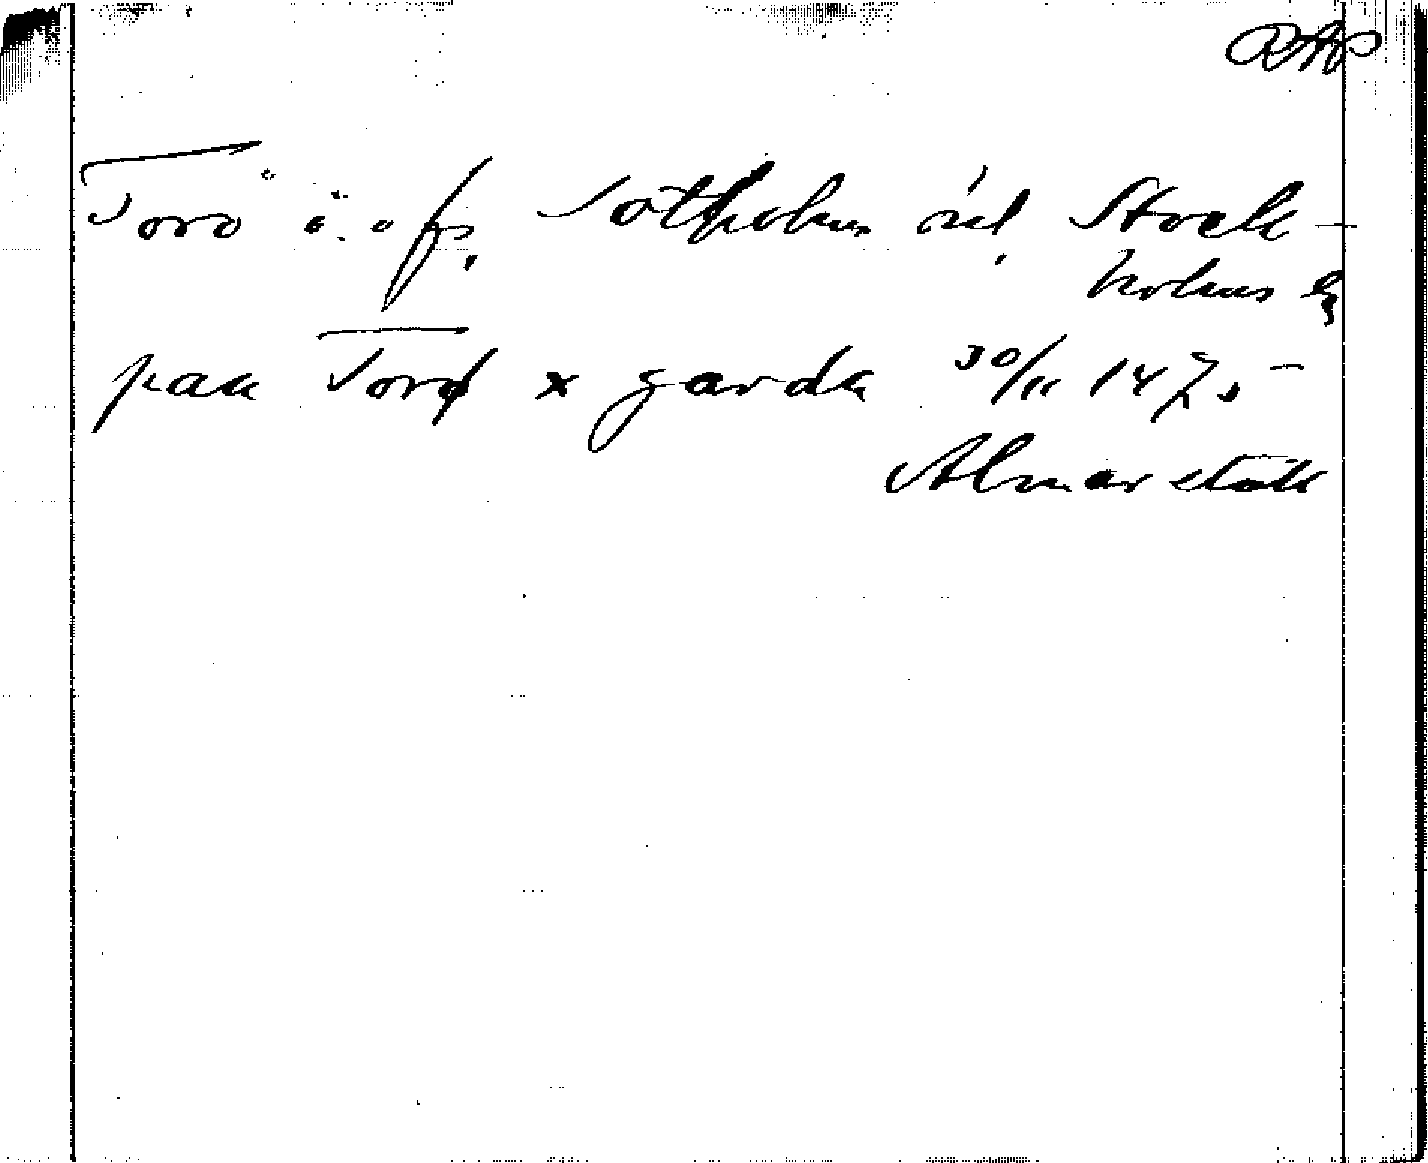 RAP
Torö ö. o fs, Sotholms hd, Stock-
holms l.
paa Torø x garda 30/11 1475
Almarstäk